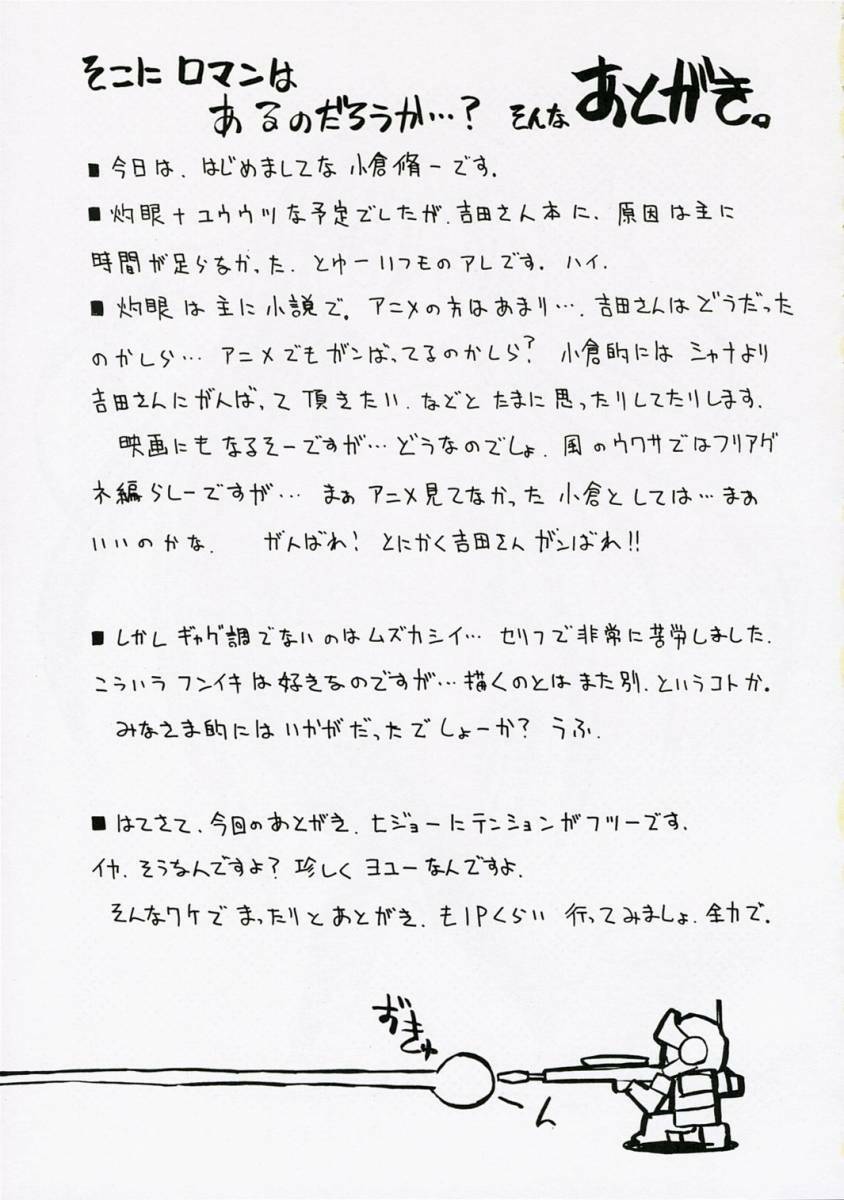 そこに ロマンは
あるのだろうか…? そんな あとがき。
■今日は、はじめましてな 小倉脩一です.
■灼眼+ユウウツな予定でしたが.吉田さん本に、原因は主に
時間が足らなかった.とゆーいつものアレです. ハイ.
■灼眼は主に小説で。アニメの方はあまり…. 吉田さんはどうだった
のかしら… アニメでもガンばってるのかしら? 小倉的には シャナより
吉田さんにがんばって頂きたい.などと たまに思ったりしてたりします.
映画にもなるそーですが…どうなのでしょ. 風のウワサではフリアグ
ネ編らしーですが… まぁ アニメ見てなかった 小倉としては…まぁ
いいのかな. がんばれ! とにかく吉田さん ガンばれ!!
■しかし ギャグ調でないのはムズカシイ… セリフで非常に苦労しました.
こういう フンイキは好きなのですが…描くのとは また別.というコトか。
みなさま的にはいかがだったでしょーか? うふ.
■はてさて、今回のあとがき、ヒジョーにテンションがフツーです.
イヤ.そうなんですよ? 珍しく ヨユーなんですよ.
そんなワケで まったりと あとがき. も1Pくらい 行ってみましょ.全力で。
おきゅ
ーん